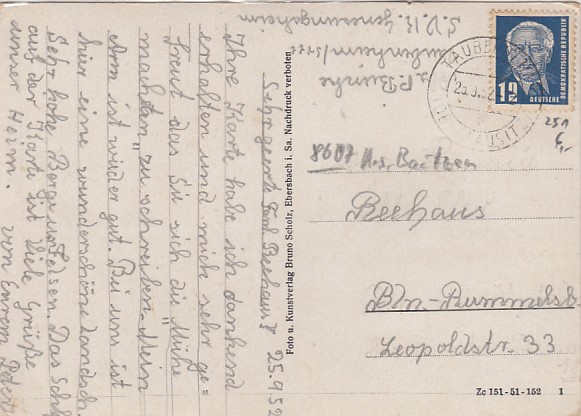 Sehr geerte Fam. Reehaus! 25.9.52
Ihre Karte habe ich dankend
erhalten und mich sehr ge=
freut das Sie sich die Mühe
machten zu schreiben. Mein
Arm ist wieder gut. Bei uns ist
hir eine wunderschöne Landsch.
Sehr hohe Berge u. Felsen. Das Schl
auf der Karte ist Viele Grüße
unser Heim.
von Eurem Peter
Foto u. Kunstverlag Bruno Scholz, Ebersbach i. Sa. Nachdruck verboten
S.V.K. Genesungsheim
12 DEUTSCHE DEMOKRATISCHE REPUBLIK
251
6,-
8607 Krs. Bautzen
Reehaus
Bln.-Rummelsb
Leopoldstr. 33
Zc 151-51-152 1